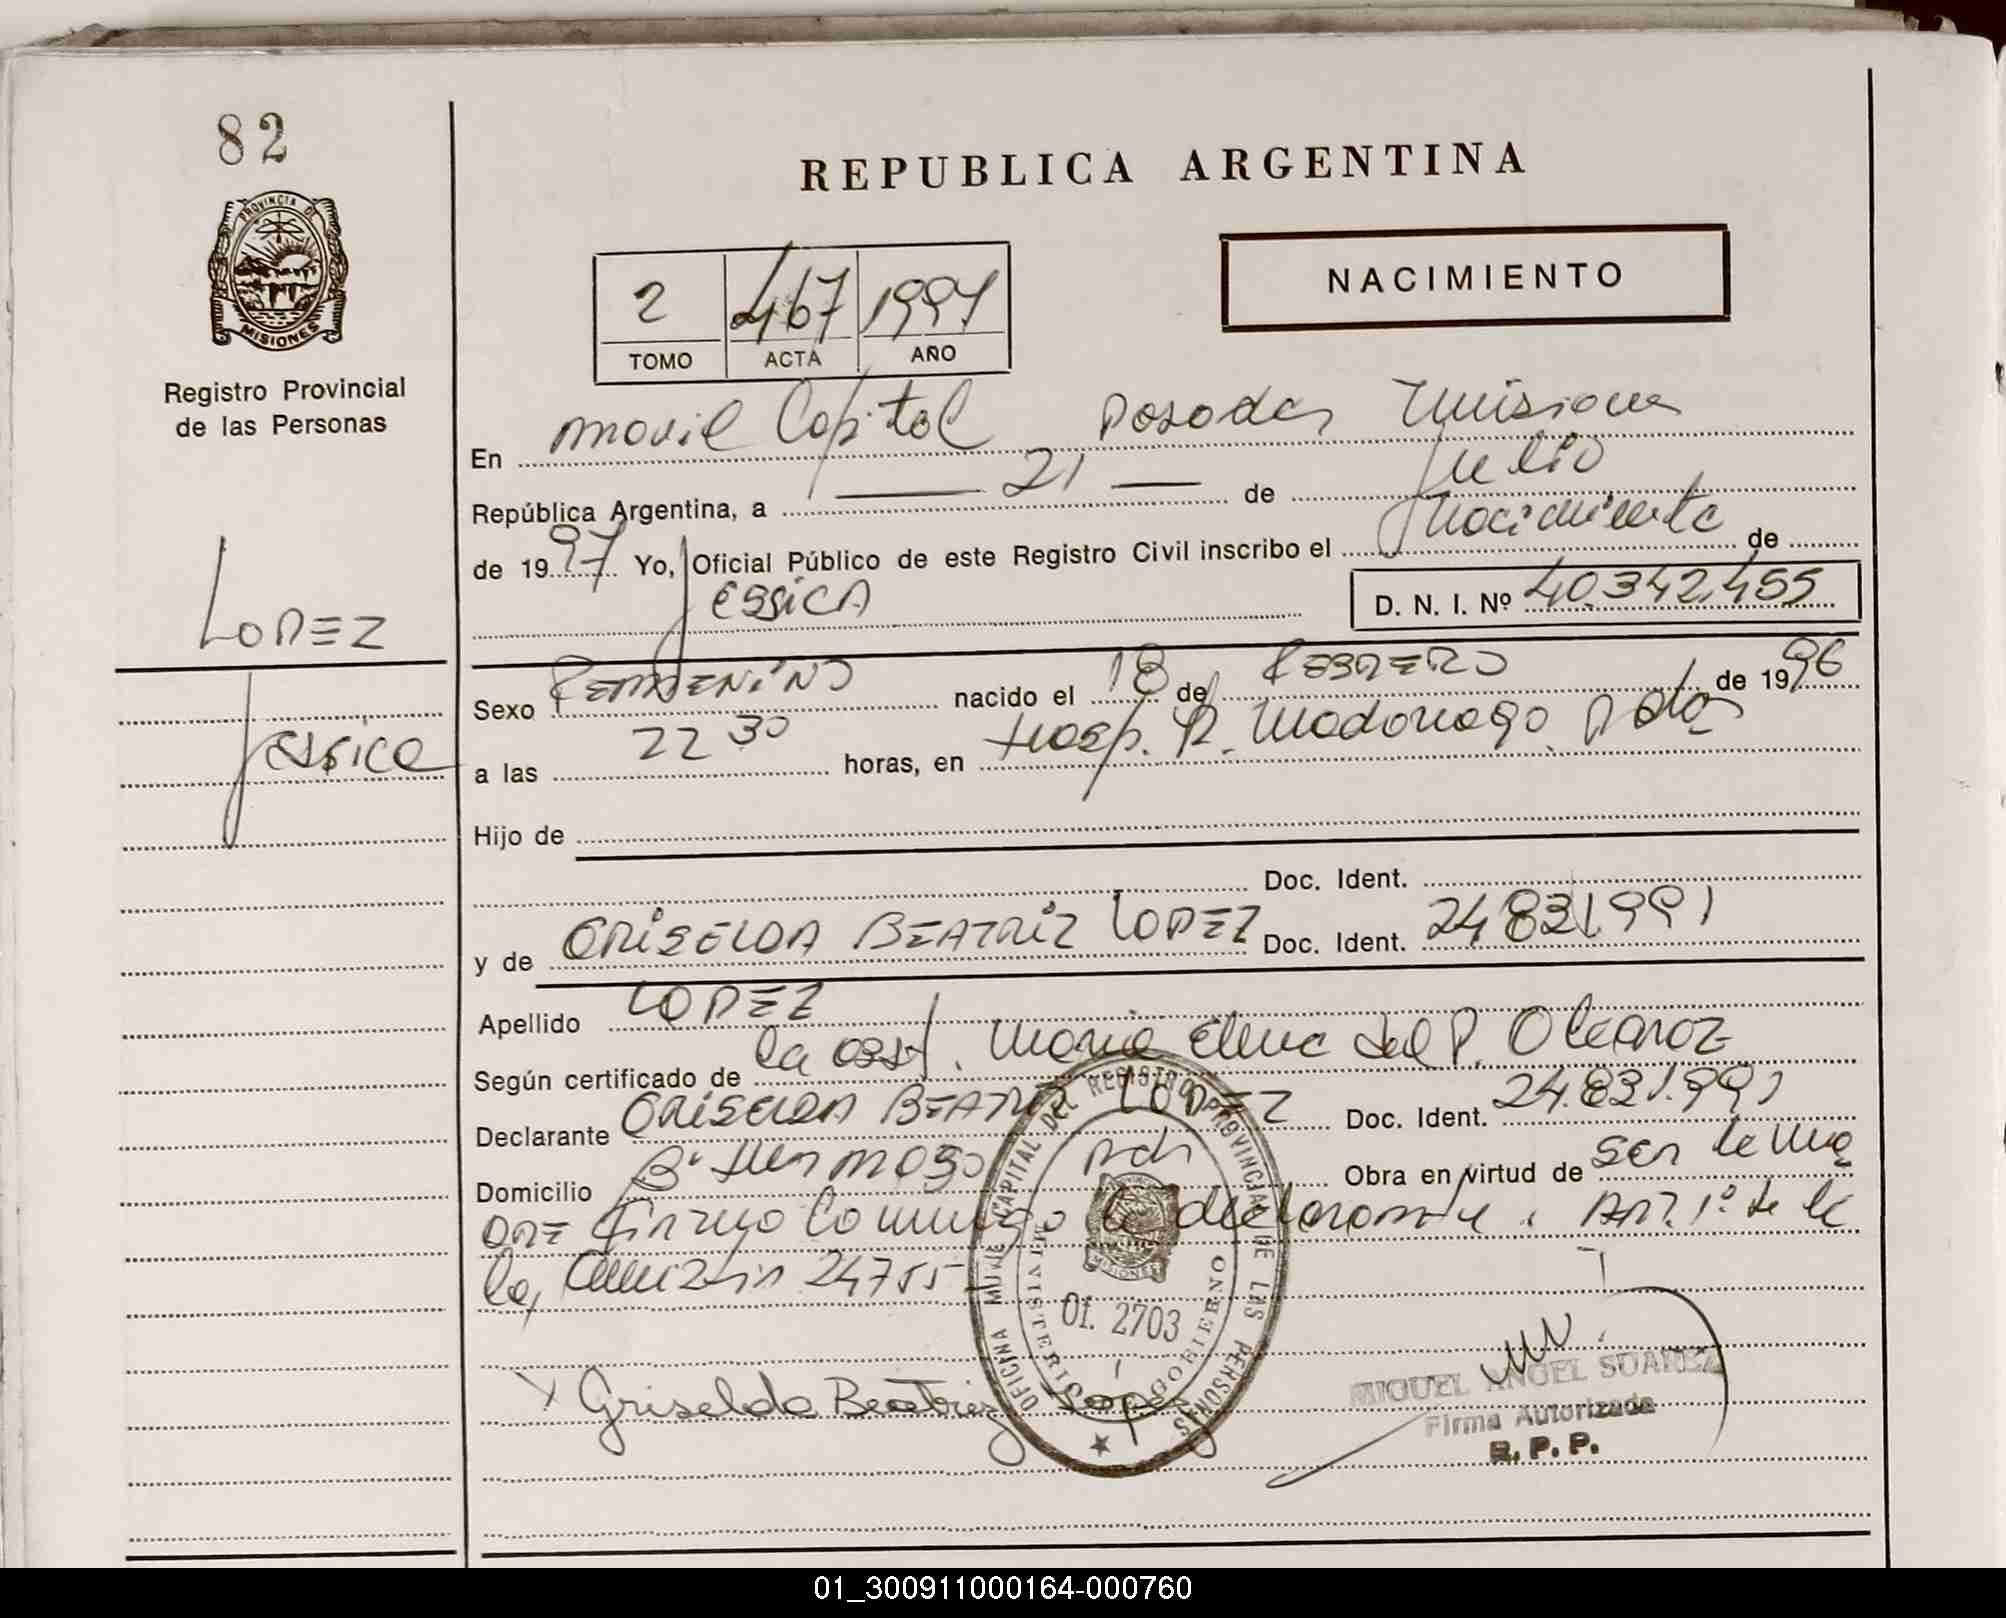 82
REPUBLICA ARGENTINA
PROVINCIA DE
MISIONES
NACIMIENTO
2 467 1997
TOMO ACTA AÑO
Registro Provincial
de las Personas
En movil Capital Posadas Misiones
República Argentina, a 21 de Julio
de 1997 Yo, Oficial Público de este Registro Civil inscribo el nacimiento de
Jessica D. N. I. Nº 40.342.455
LOPEZ
Jessica
Sexo FEMENINO nacido el 18 de FEBRERO de 1996
a las 22 30 horas, en Hosp. R. Madariaga Pdas
Hijo de
Doc. Ident.
y de GRISELDA BEATRIZ LOPEZ Doc. Ident. 24.831.991
Apellido LOPEZ
Según certificado de la obst. Maria Elena del P. Olearoz
Declarante GRISELDA BEATRIZ LOPEZ Doc. Ident. 24.831.991
Domicilio B° Pds Obra en virtud de ser la ma
dre la declarante. Art. 1° de la
ley 24755
OFICINA MOVIL CAPITAL DEL REGISTRO PROVINCIAL DE LAS PERSONAS
MINISTERIO DE GOBIERNO
MISIONES
Of. 2703
x Griselda Beatriz Lopez
MIGUEL ANGEL SUAREZ
Firma Autorizada
R. P. P.
01_300911000164-000760